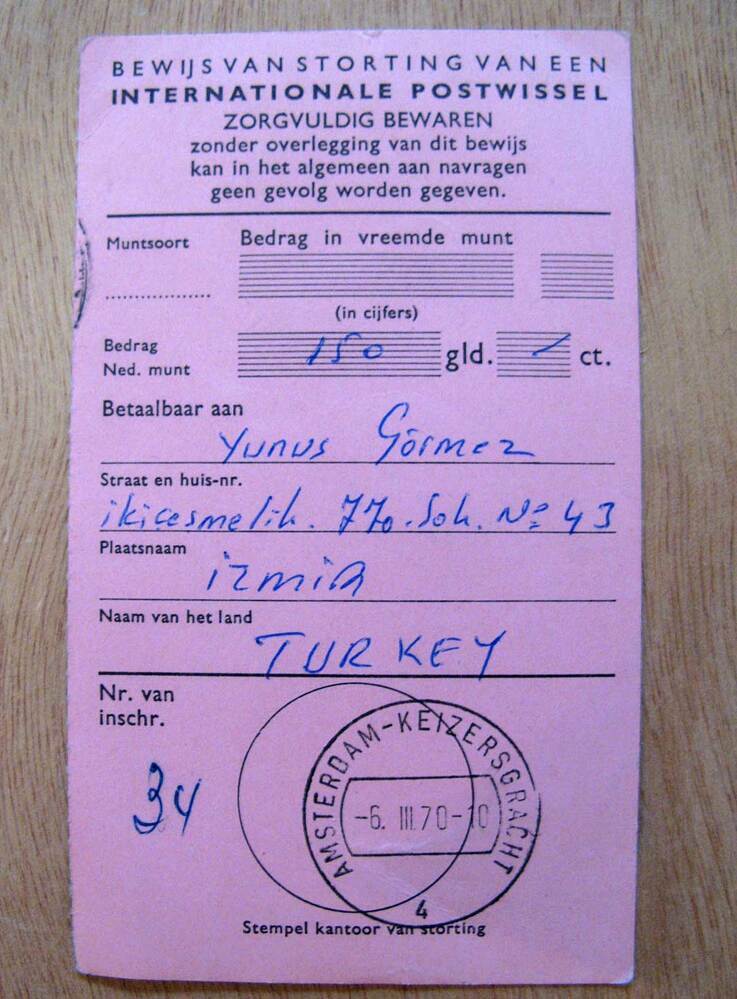 BEWIJS VAN STORTING VAN EEN
INTERNATIONALE POSTWISSEL
ZORGVULDIG BEWAREN
zonder overlegging van dit bewijs
kan in het algemeen aan navragen
geen gevolg worden gegeven.
Muntsoort Bedrag in vreemde munt
(in cijfers)
Bedrag
Ned. munt 150 gld. - ct.
Betaalbaar aan
Yunus Görmez
Straat en huis-nr.
ikicesmelik. 770. Sok. No= 43
Plaatsnaam
izmiR
Naam van het land
TURKEY
Nr. van
inschr.
34
AMSTERDAM-KEIZERSGRACHT
-6. III.70-10
4
Stempel kantoor van storting